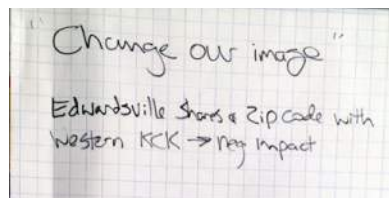 "Change our image"
Edwardsville shares a Zip code with
Western KCK → neg impact